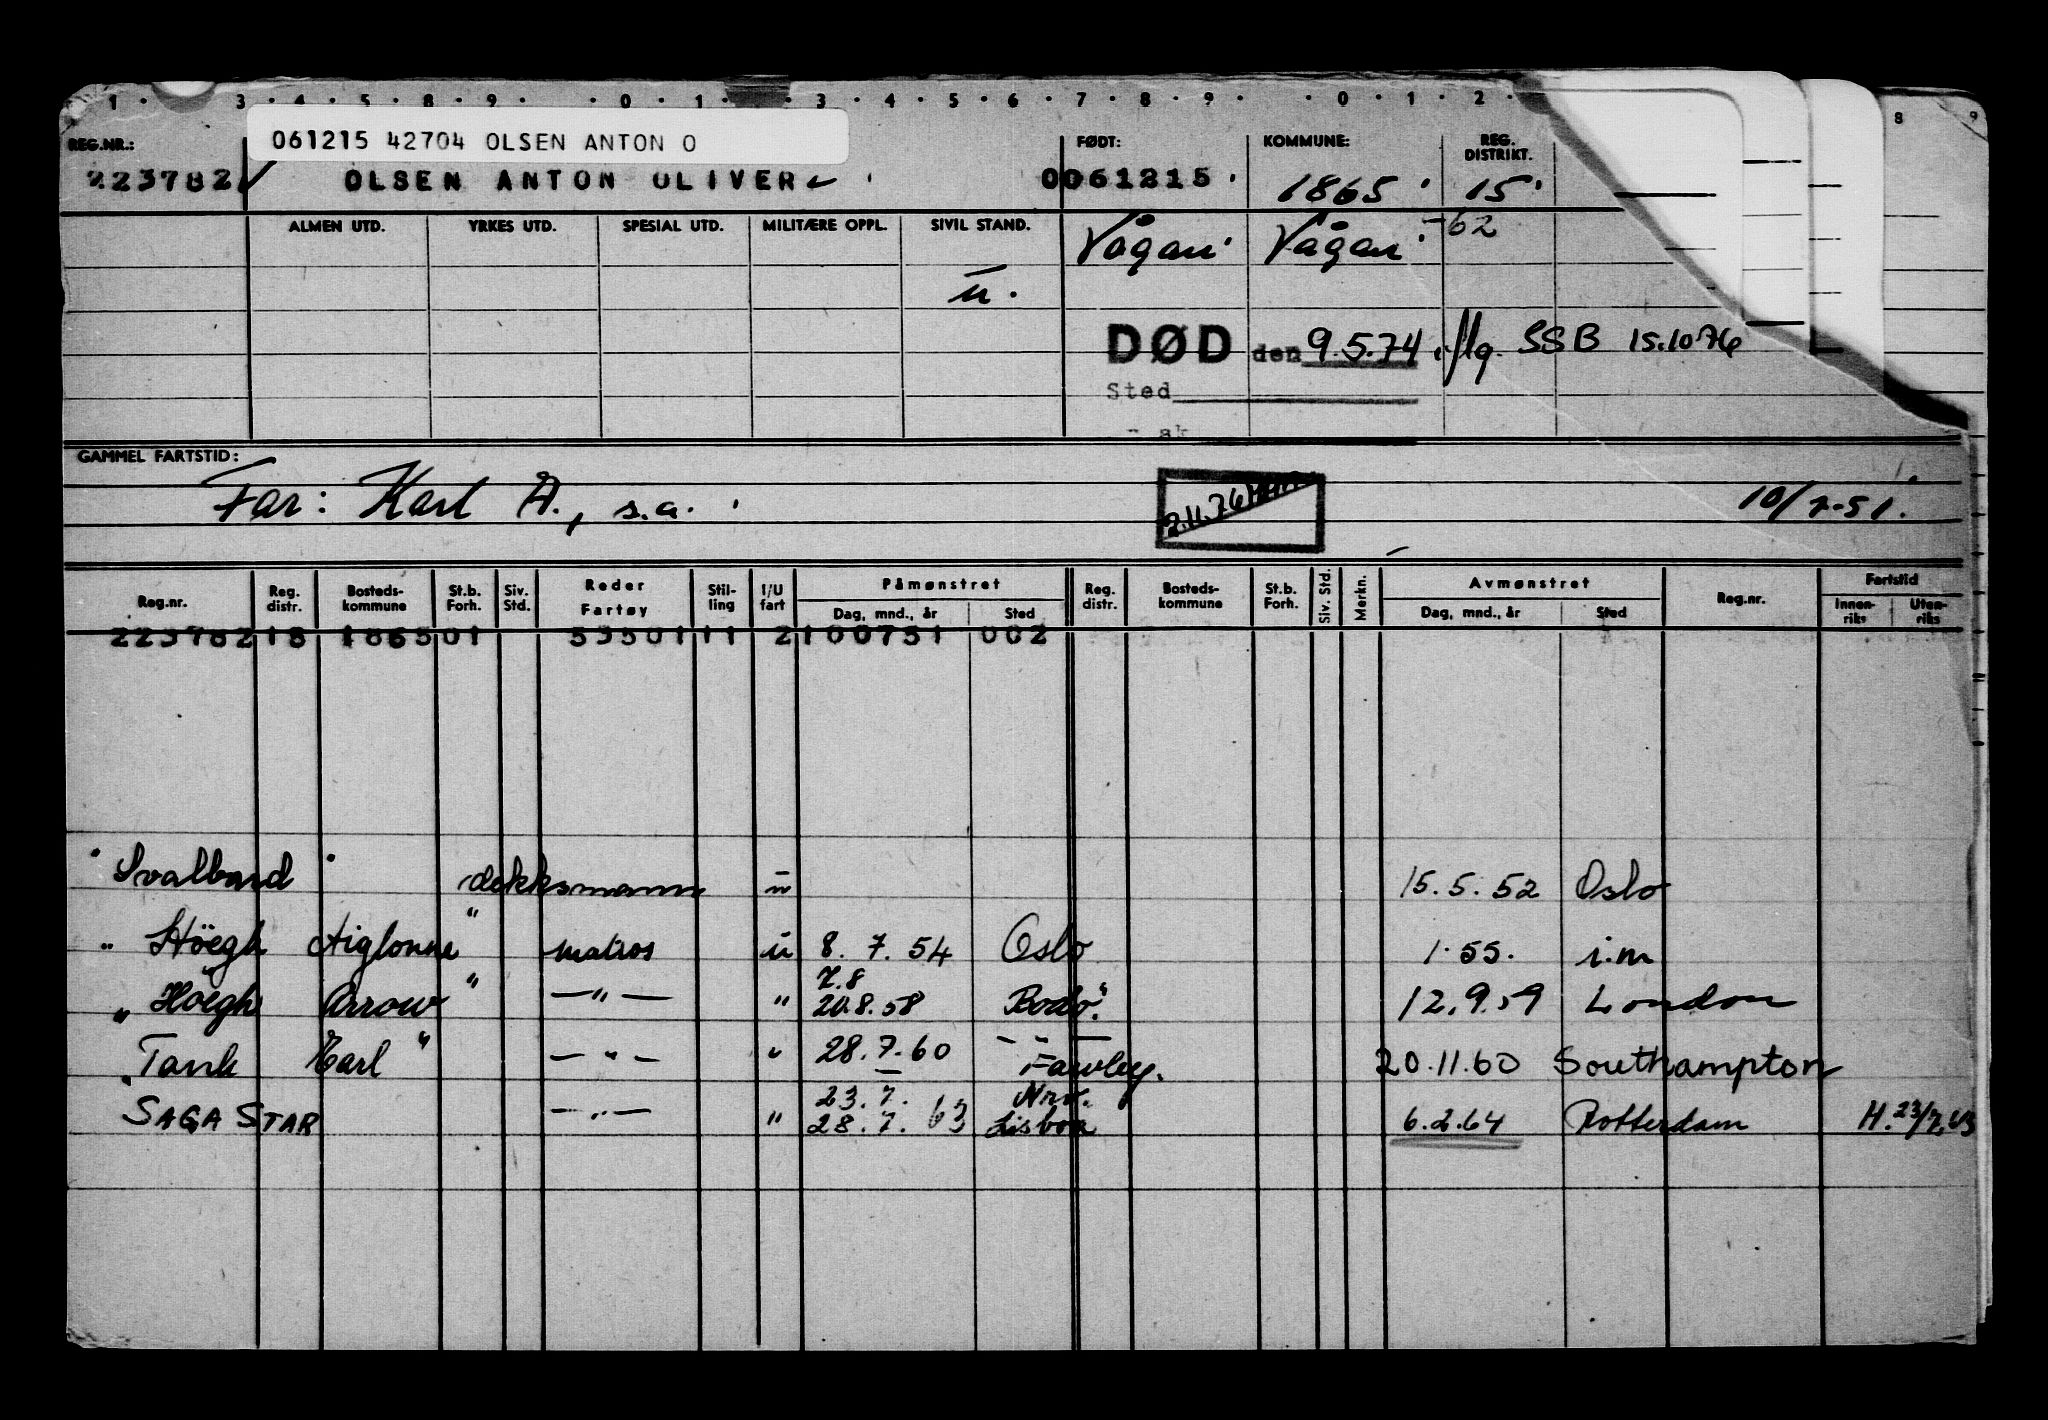 1 · 3 · 4 · 5 · 8 · 9 · · 0 · 1 · 3 · 4 · 5 · 6 · 7 · 8 · 9 · · 0 · 1 · 2 · 8 9
061215 42704 OLSEN ANTON O
REG.NR.: FØDT: KOMMUNE: REG. DISTRIKT.
223782 OLSEN ANTON OLIVER 0061215 1865 15
ALMEN UTD. YRKES UTD. SPESIAL UTD. MILITÆRE OPPL. SIVIL STAND. Vågan Vågan -62
u.
DØD den 9.5.74 iflg. SSB 15.10.76
Sted
GAMMEL FARTSTID:
Far: Karl A., s.a. 2.11.76 10/7-51.
Reg.nr. Reg. distr. Bosteds-kommune St.b. Forh. Siv. Std. Reder Fartøy Stil-ling I/U fart Påmønstret Dag, mnd., år Sted Reg. distr. Bosteds-kommune St.b. Forh. Siv. Std. Merkn. Avmønstret Dag, mnd., år Sted Reg.nr. Fartstid Innen-riks Uten-riks
223782 15 1865 01 53501 11 2 100751 002
"Svalbard" dekksmann u 15.5.52 Oslo
"Höegh Aiglonne" matros u 8.7.54 Oslo 1.55. i.m
7.8
"Höegh Arrow" —"— " 20.8.58 Bodø. 12.9.59 London
"Tank Earl" —"— " 28.7.60 Fawley. 20.11.60 Southampton
23.7. Nrv.
SAGA STAR —"— " 28.7.63 Lisbon 6.2.64 Rotterdam H.23/7.63